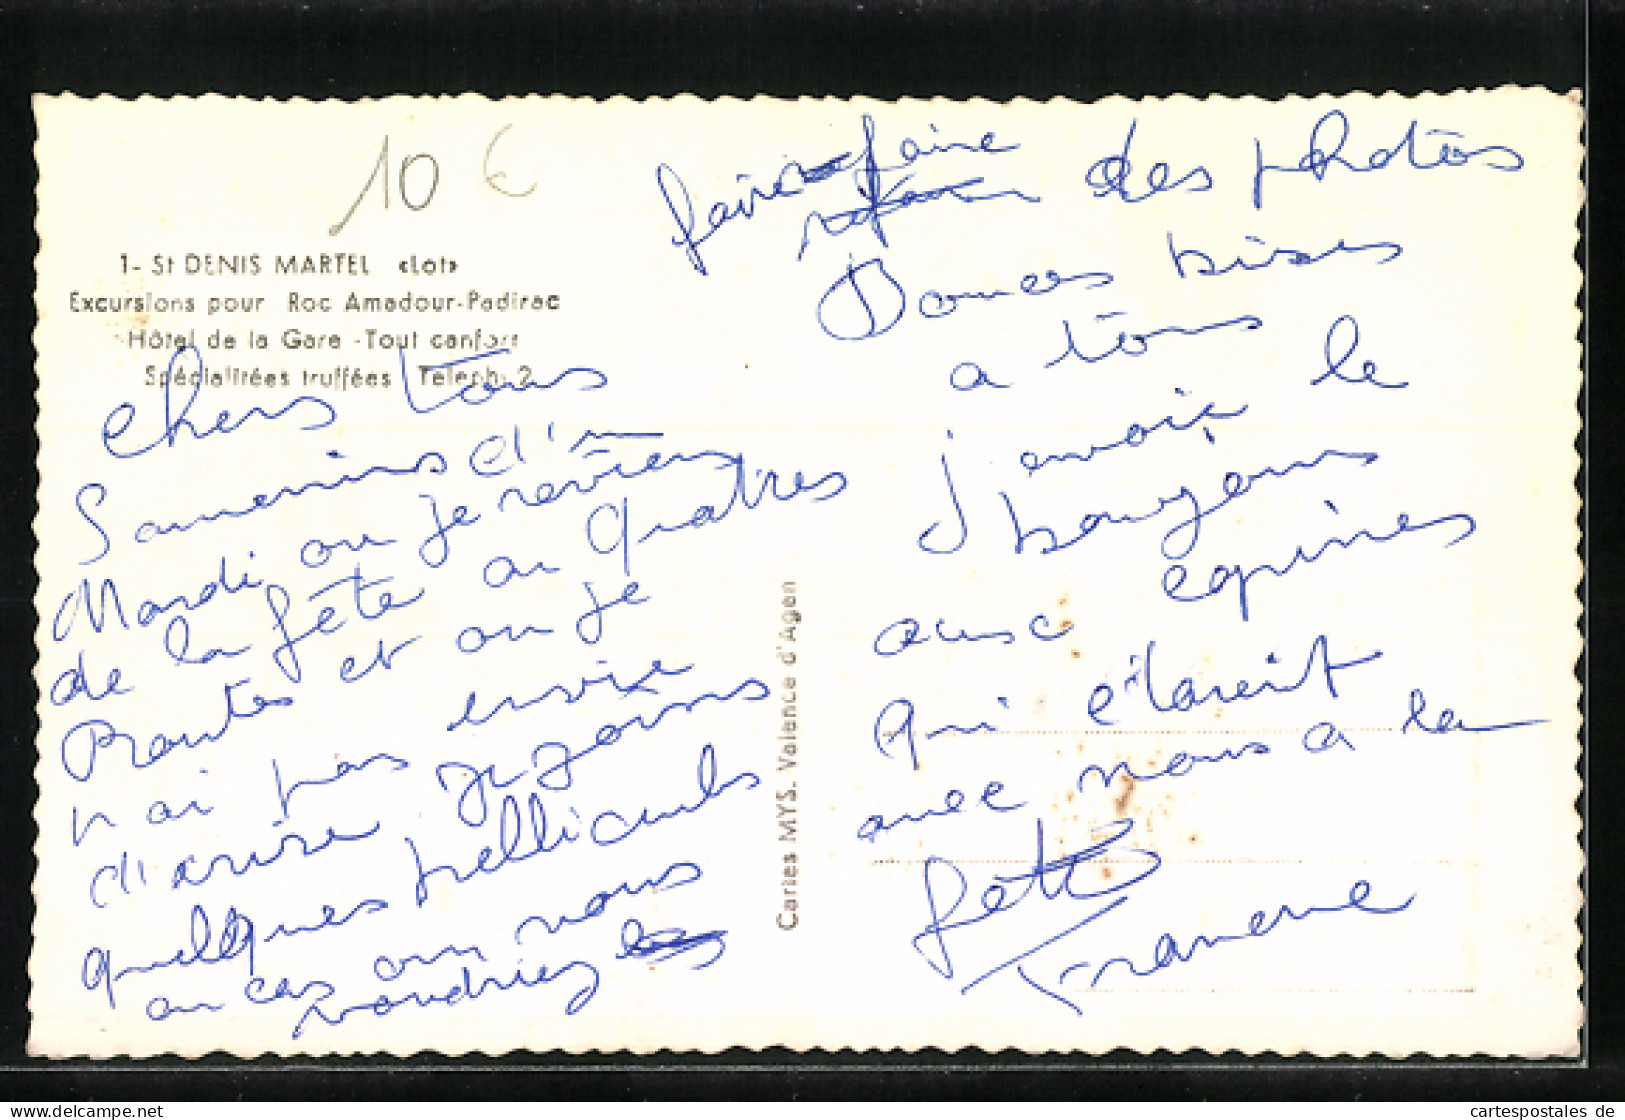 10 €
1- St DENIS MARTEL «Lot»
Excursions pour Roc Amadour-Padirac
Hôtel de la Gare - Tout confort
Spécialitrées truffées Téleph. 2
Chers tous
Souvenirs d'un
Mardi ou je reviens
de la fête au quatres
Routes et ou je
n'ai pas envie
d'ecrire je joins
quelques pellicules
au cas ou vous
voudriez
faire faire
des photos
Douces bises
a tous
J'envoie le
bonjour
aux copines
qui étaient
avec nous a la
fête
Francine
Cartes MYS. Valence d'Agen
cartespostales de